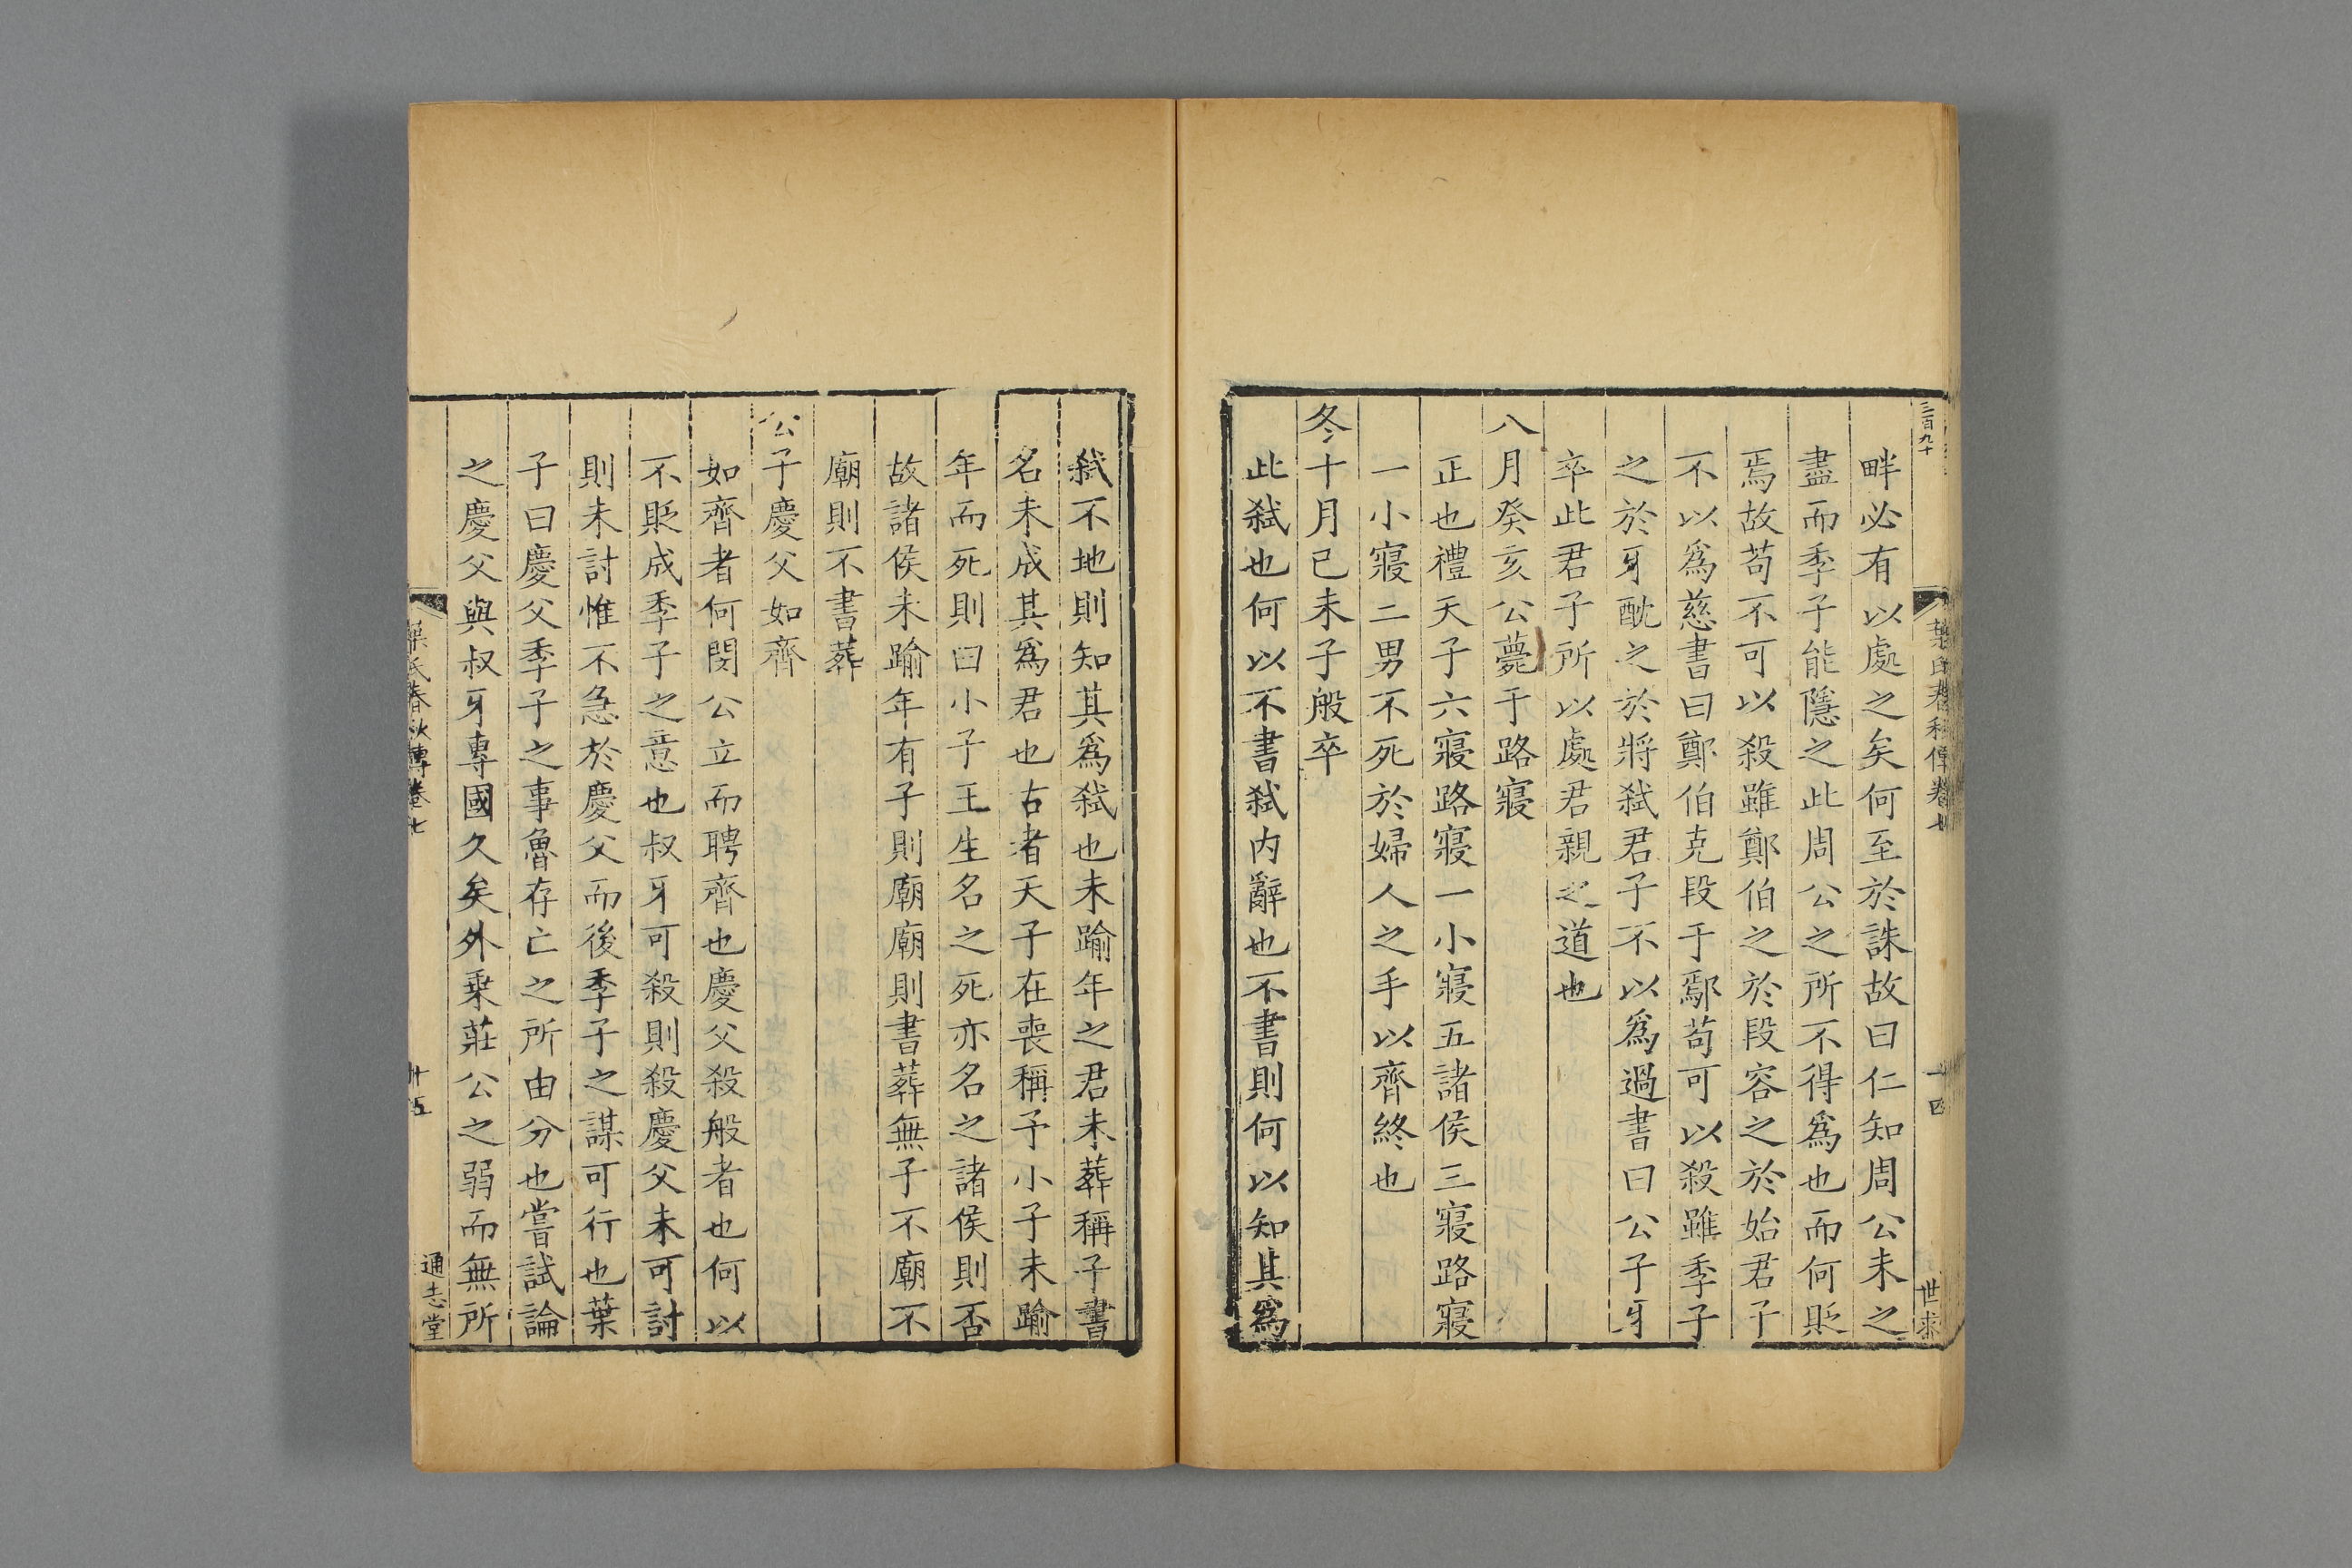 三百九十
葉氏春秋傳卷七
十四
世來
畔必有以處之矣何至於誅故曰仁知周公未之
盡而季子能隱之此周公之所不得爲也而何貶
焉故苟不可以殺雖鄭伯之於段容之於始君子
不以爲慈書曰鄭伯克段于鄢苟可以殺雖季子
之於牙酖之於將弑君子不以爲過書曰公子牙
卒此君子所以處君親之道也
八月癸亥公薨于路寢
正也禮天子六寢路寢一小寢五諸侯三寢路寢
一小寢二男不死於婦人之手以齊終也
冬十月已未子般卒
此弑也何以不書弑内辭也不書則何以知其爲
弑不地則知其爲弑也未踰年之君未葬稱子書
名未成其爲君也古者天子在喪稱予小子未踰
年而死則曰小子王生名之死亦名之諸侯則否
故諸侯未踰年有子則廟廟則書葬無子不廟不
廟則不書葬
公子慶父如齊
如齊者何閔公立而聘齊也慶父殺般者也何以
不貶成季子之意也叔牙可殺則殺慶父未可討
則未討惟不急於慶父而後季子之謀可行也葉
子曰慶父季子之事魯存亡之所由分也嘗試論
之慶父與叔牙專國久矣外乗莊公之弱而無所
葉氏春秋傳卷七
十五
通志堂